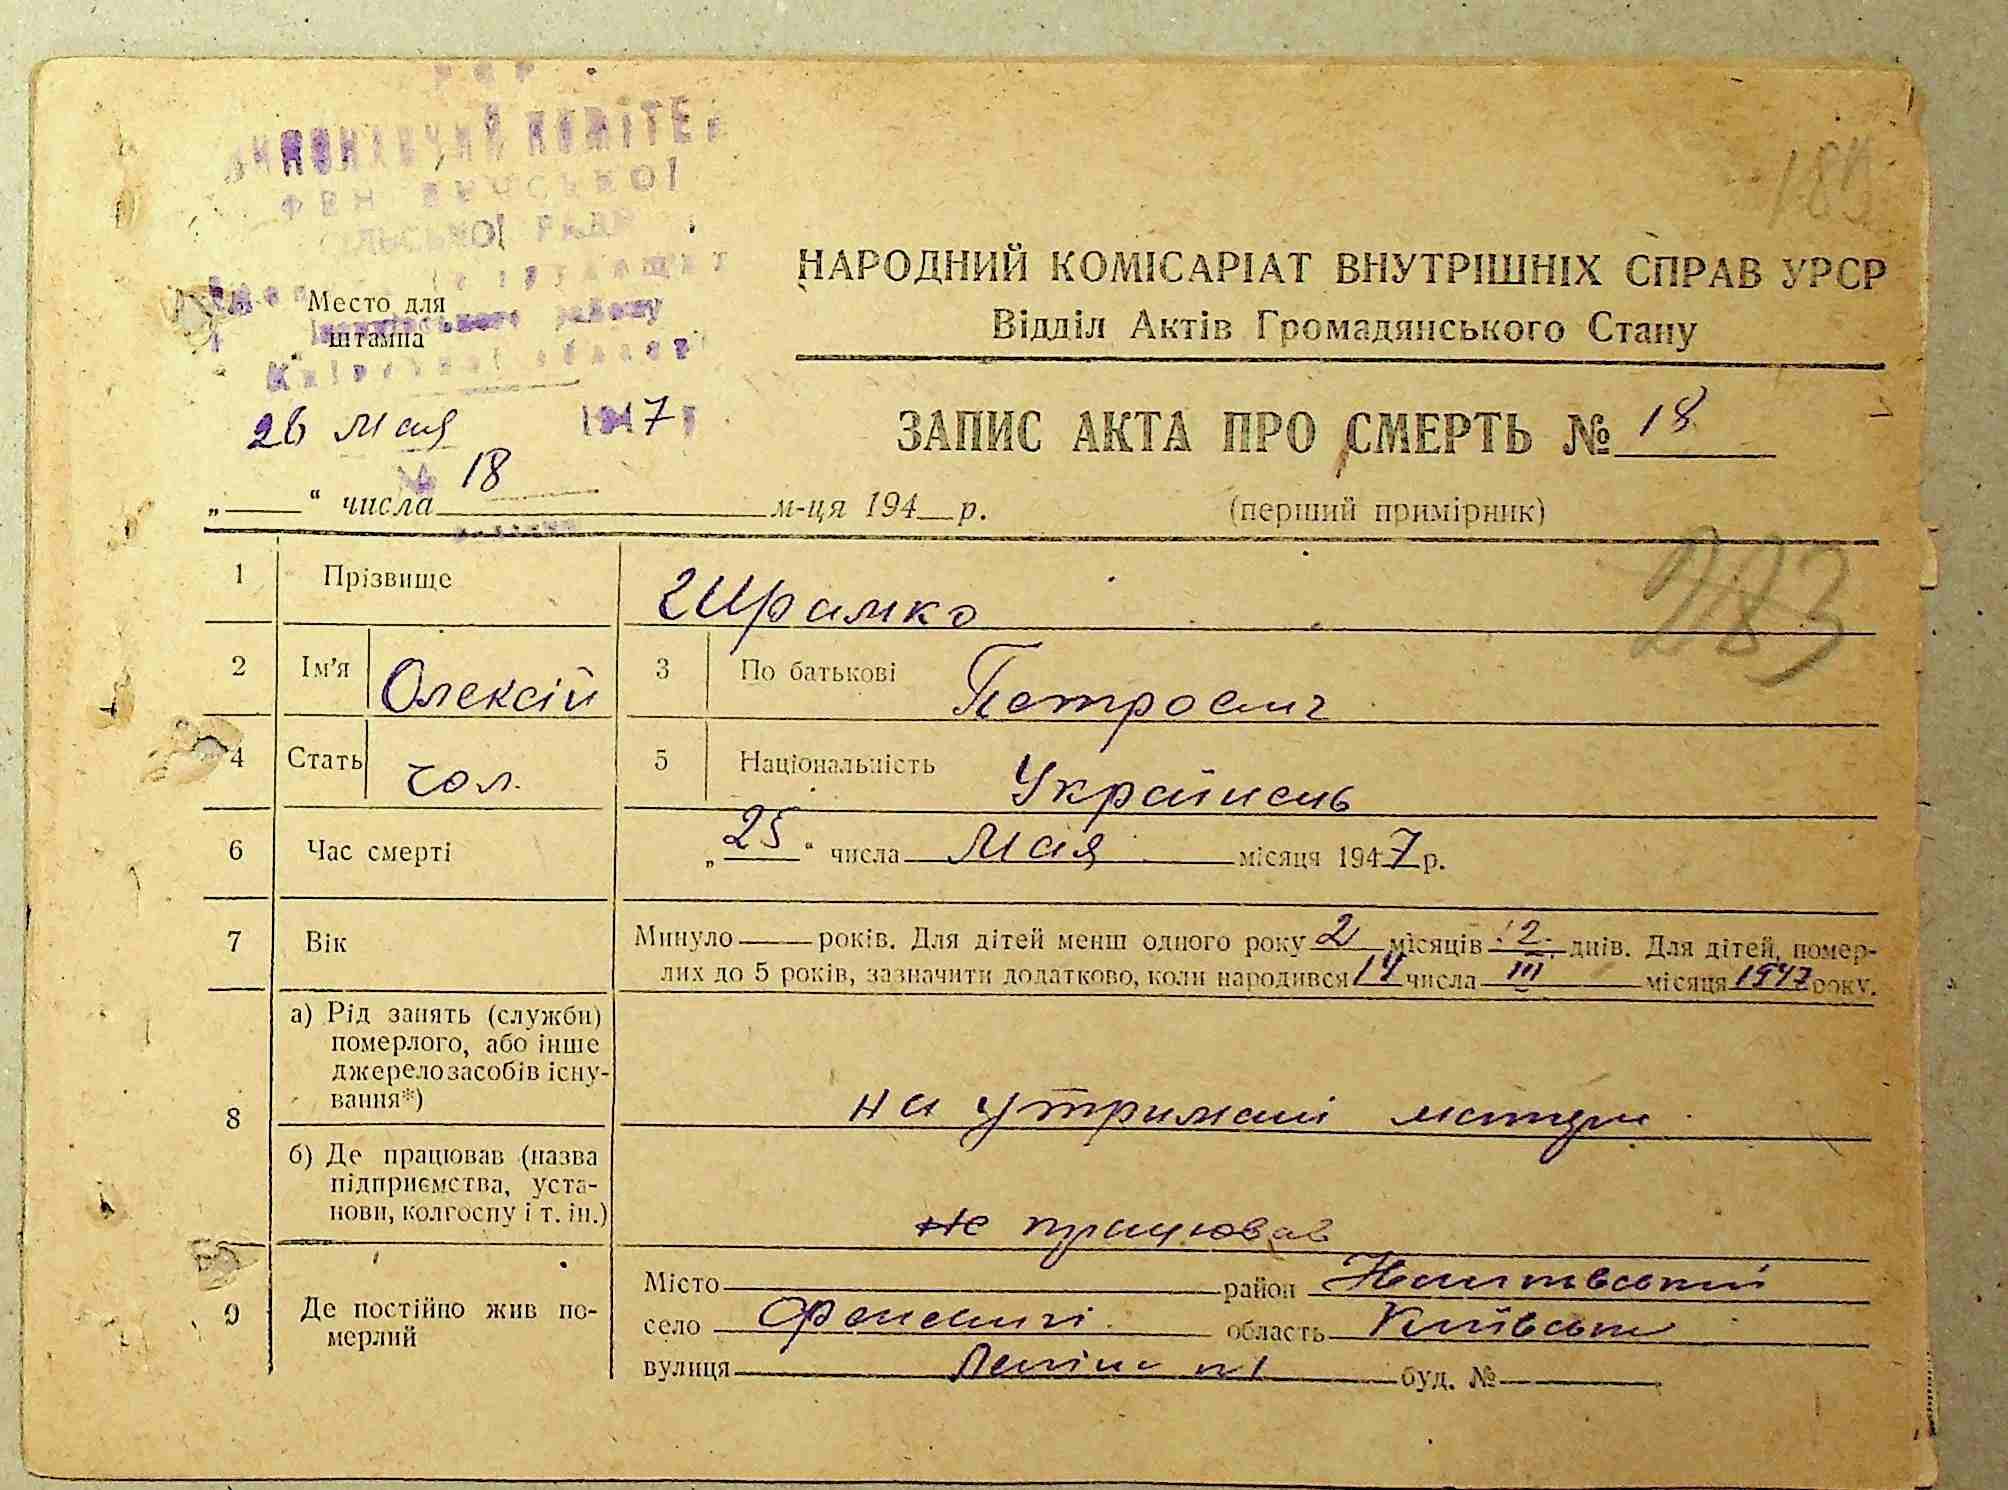 РСР
ВИКОНАВЧИЙ КОМІТЕТ
ФЕНЕВИЧСЬКОЇ
СІЛЬСЬКОЇ РАДИ
Депутатів трудящих
Іванківського району
Київської області
Место для
штампа
26 Мая 1947 р
№ 18
183
НАРОДНИЙ КОМІСАРІАТ ВНУТРІШНІХ СПРАВ УРСР
Відділ Актів Громадянського Стану
ЗАПИС АКТА ПРО СМЕРТЬ № 18
„ “ числа м-ця 194 р. (перший примірник)
283
1 Прізвище Шрамко
2 Ім’я Олексій 3 По батькові Петрович
4 Стать чол. 5 Національність Українець
6 Час смерті „25“ числа Мая місяця 1947 р.
7 Вік Минуло — років. Для дітей менш одного року 2 місяців 12 днів. Для дітей, помер-
лих до 5 років, зазначити додатково, коли народився 14 числа III місяця 1947 року.
8 а) Рід занять (служби)
померлого, або інше
джерело засобів існу-
вання*) на утримані матери
б) Де працював (назва
підприємства, уста-
нови, колгоспу і т. ін.) не працював
9 Де постійно жив по-
мерлий
Місто район
село Феневичі область Київська
вулиця Леніна буд. №